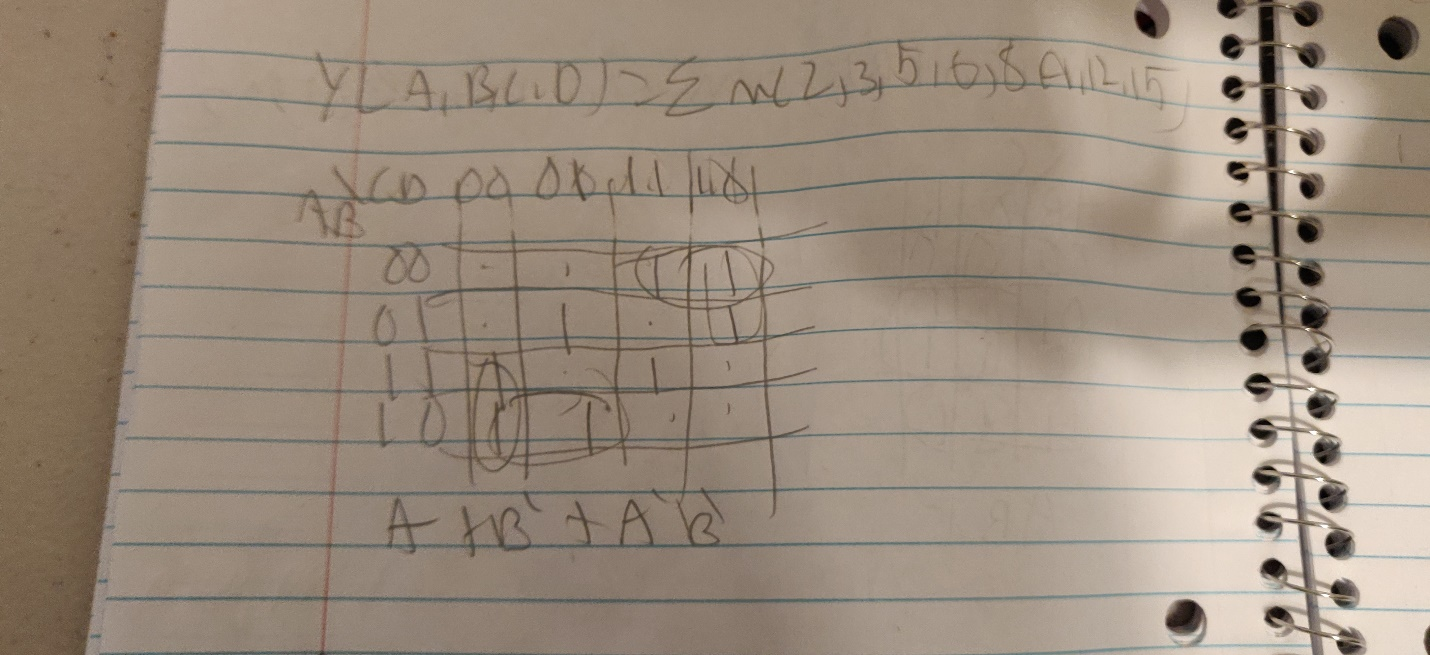 Y(A,B,C,D) = Σ m(2,3,5,6,8,9,12,15)
AB\CD 00 01 11 10
00 1 1
01 1 1
11 1 1
10 1 1
A + B' + A' B'